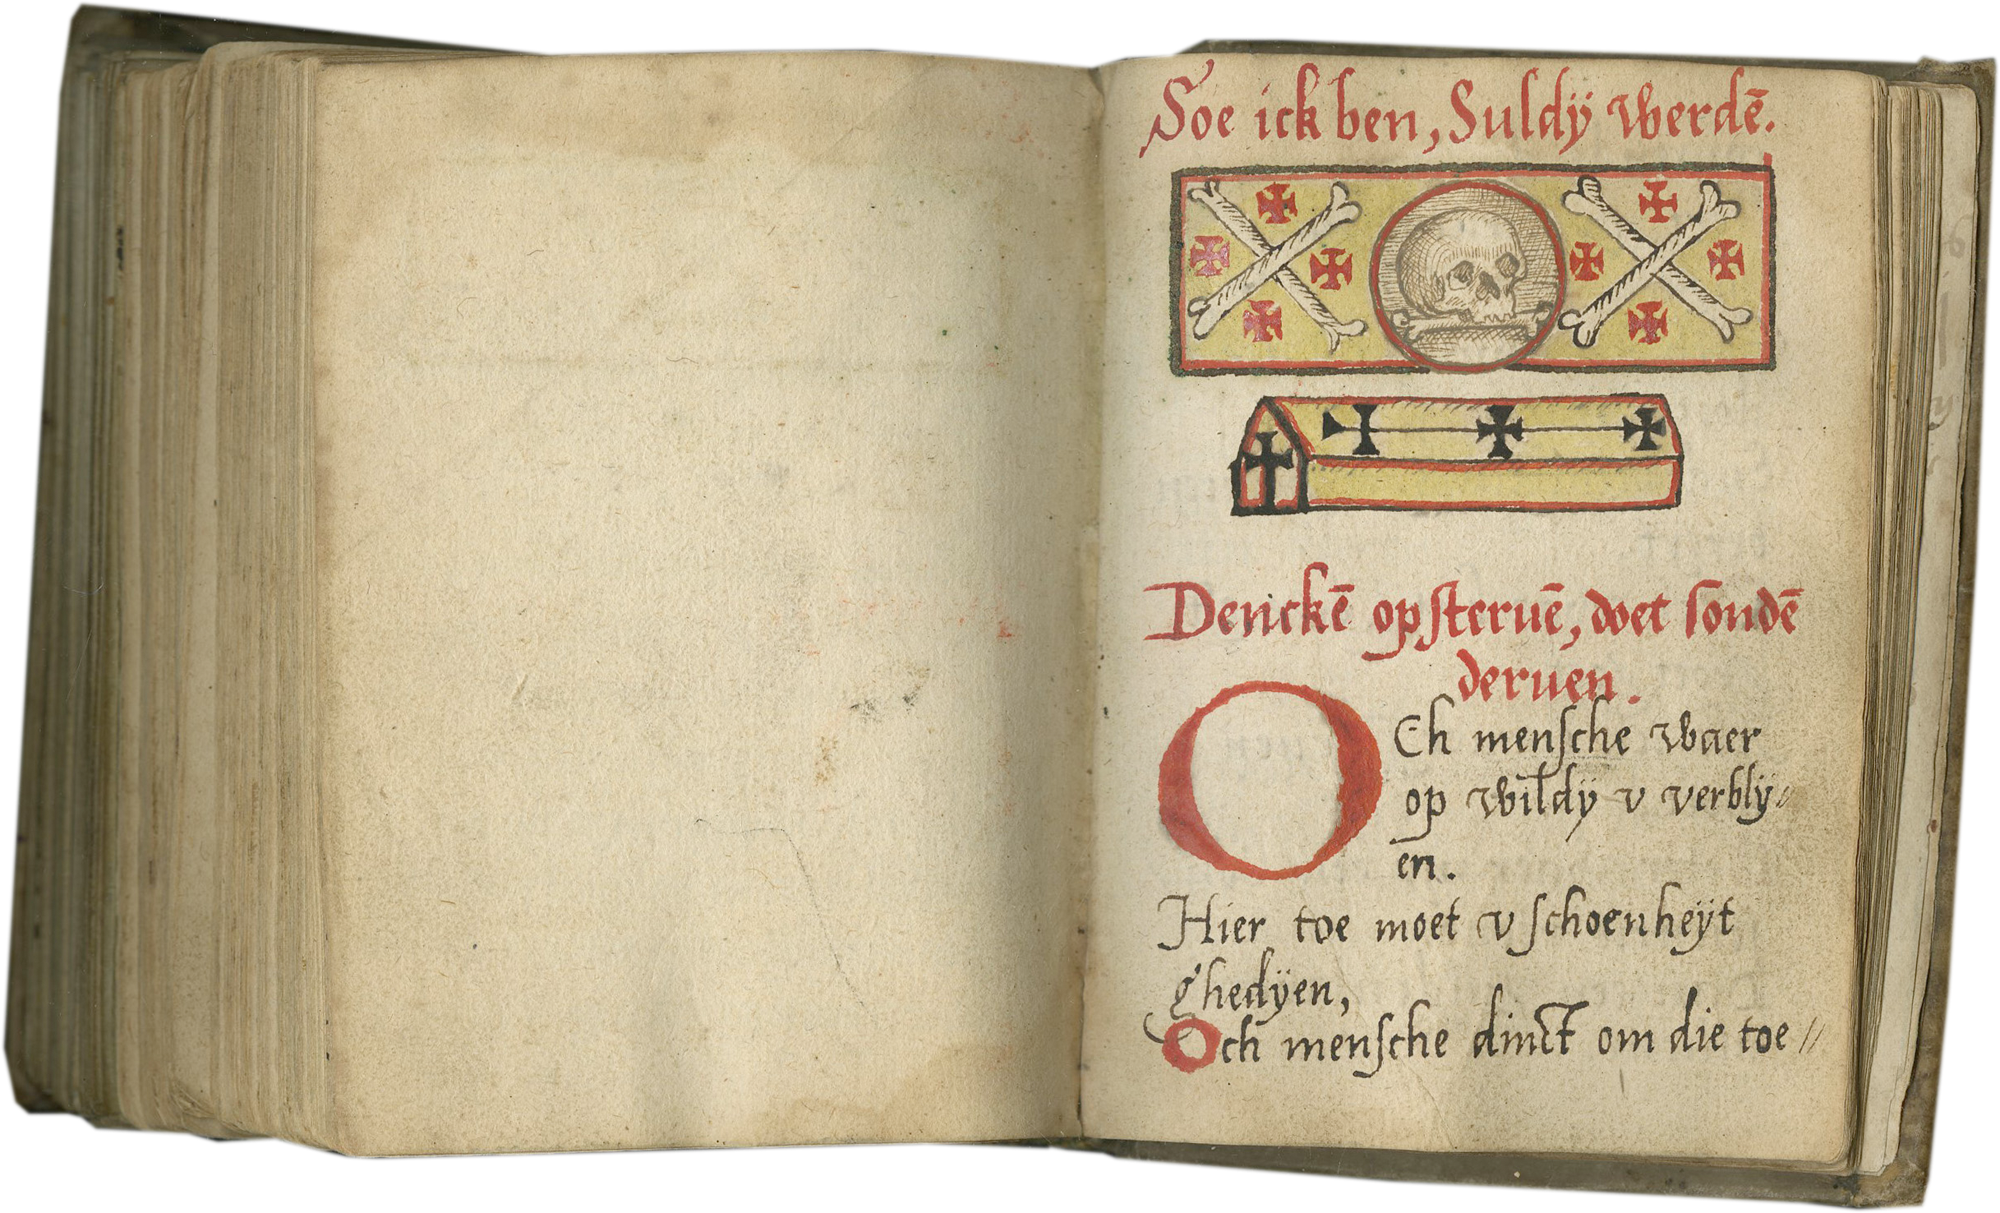 Soe ick ben, Suldÿ werdē.
Denckē op steruē, doet sondē
deruen.
OEh mensche waer
op wildÿ v verblÿ⸗
en.
Hier toe moet v schoenheÿt
ghedÿen,
Och mensche dinct om die toe //